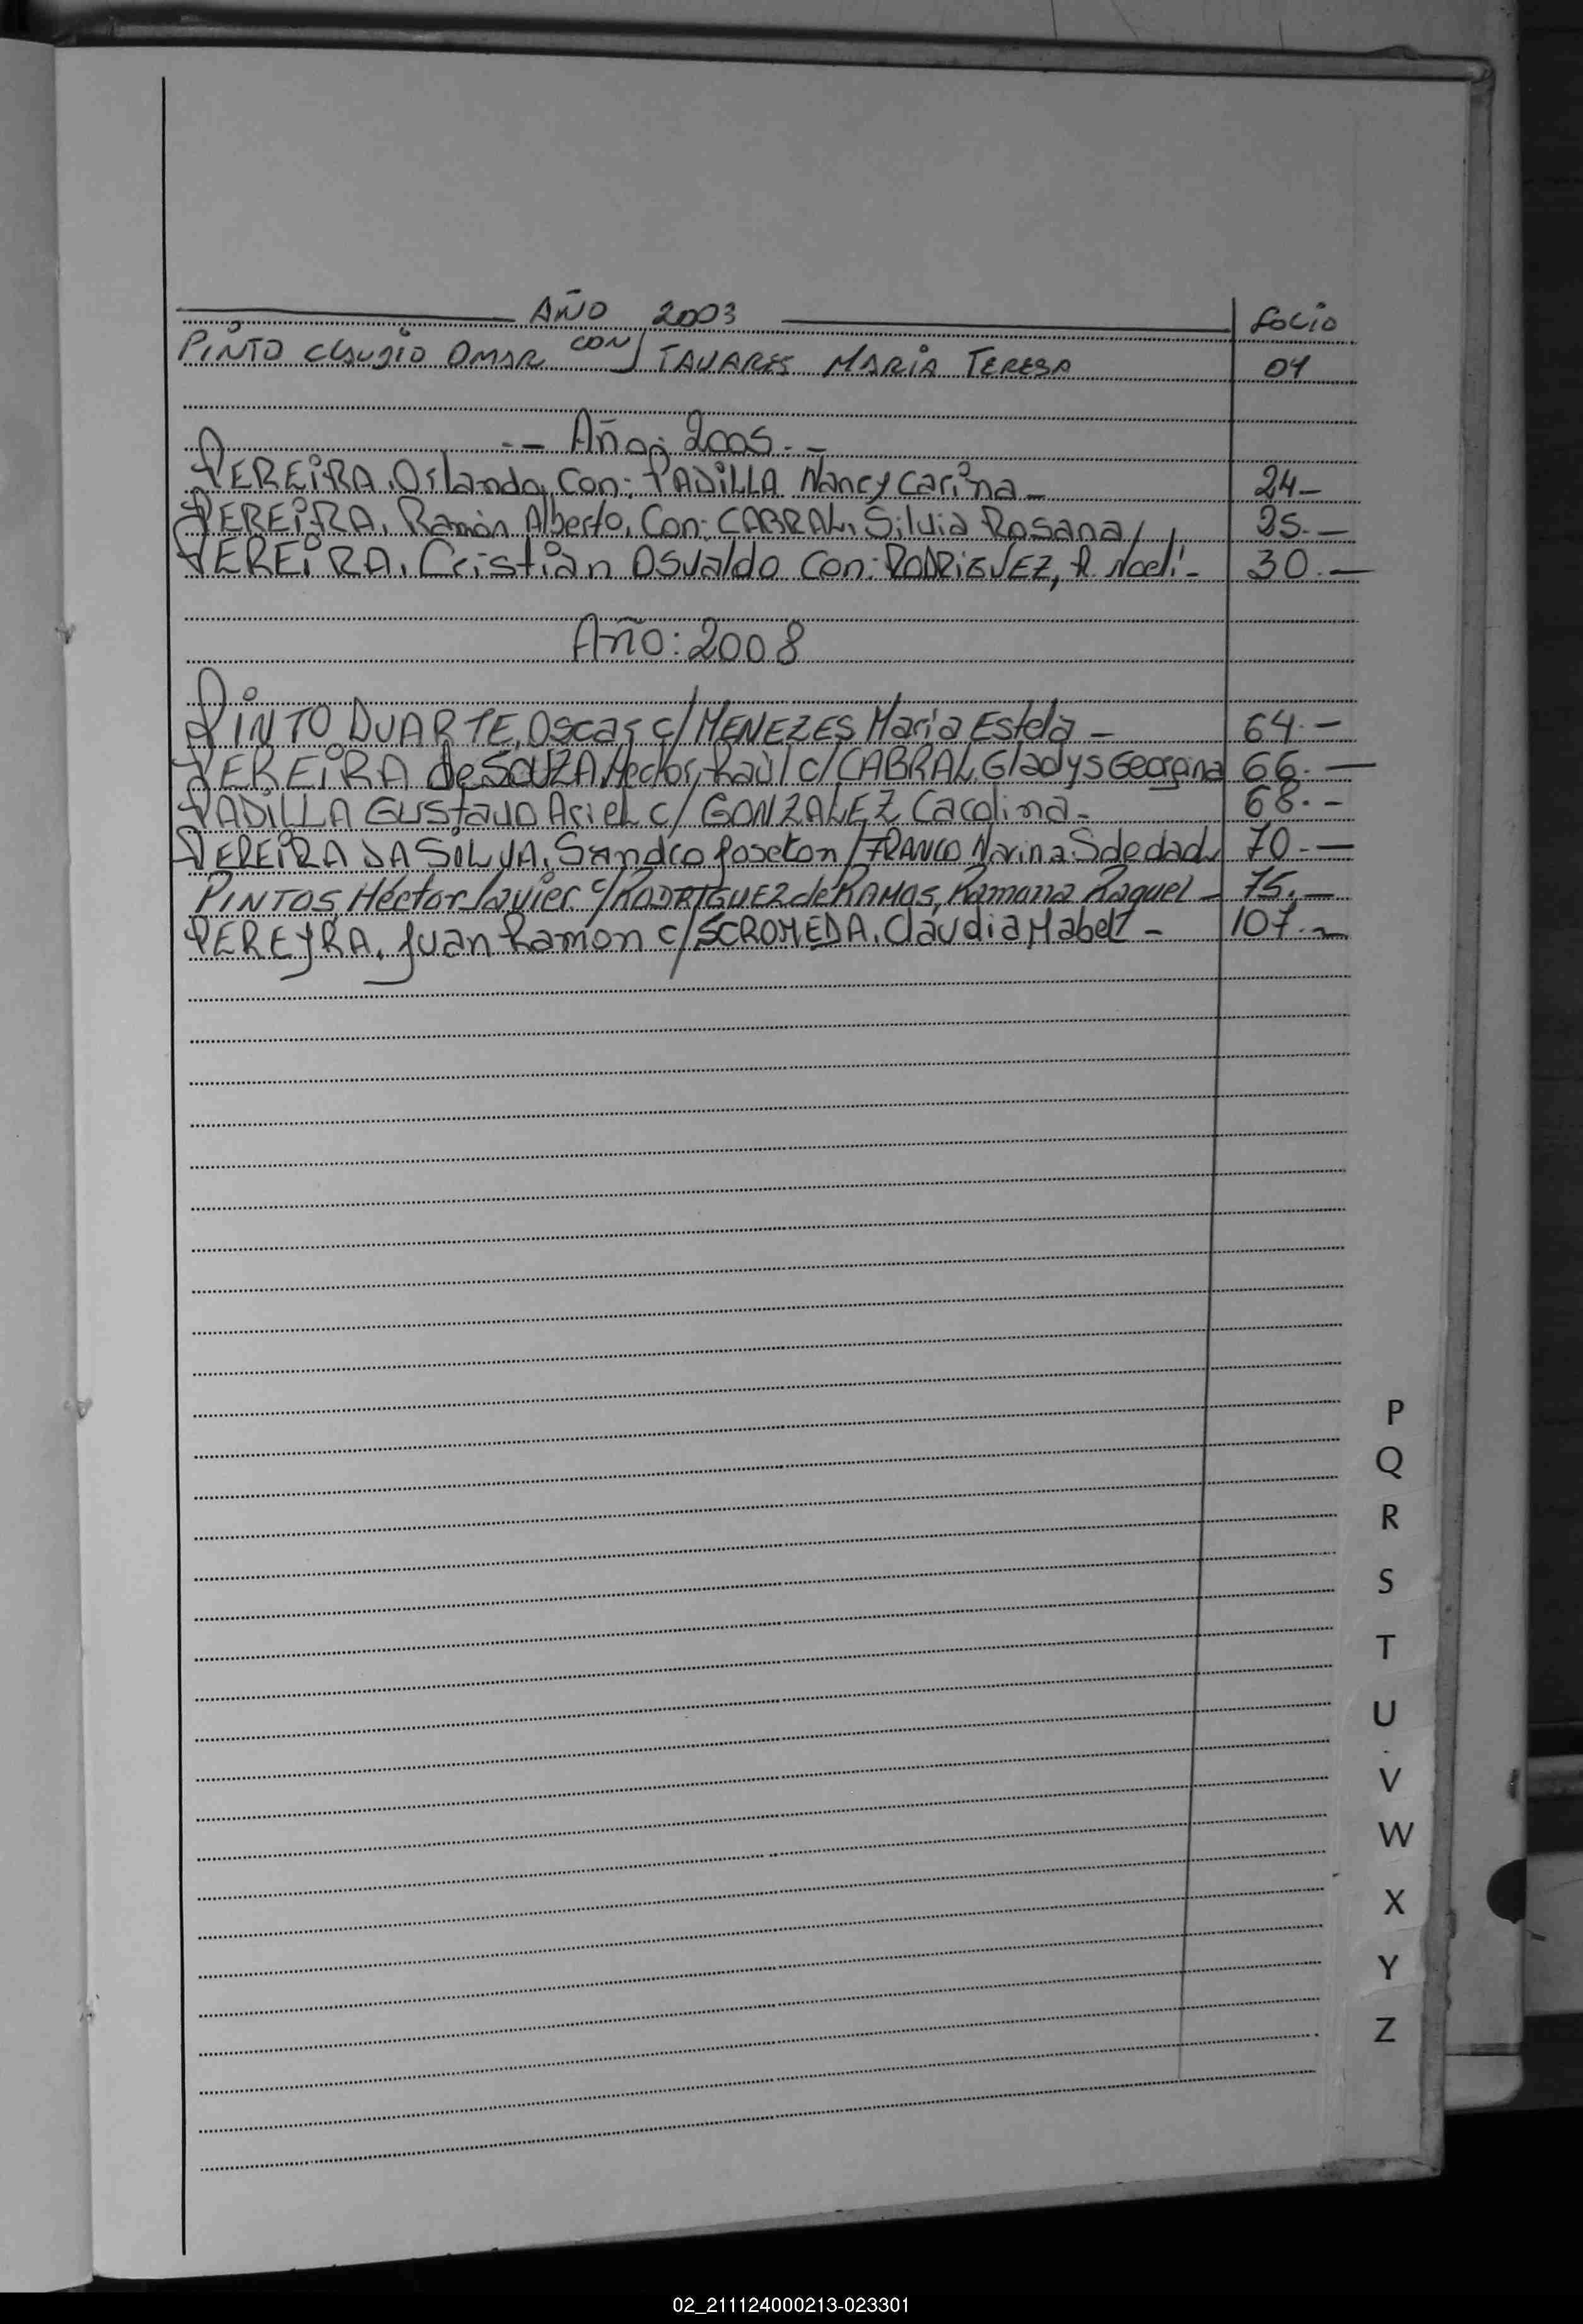 AÑO 2003 folio
PINTO CLAUDIO OMAR CON/ TAVARES MARIA TERESA 04
-- Año: 2005.-
PEREIRA, Orlando, Con: PADILLA Nancy Carina- 24-
PEREIRA, Ramón Alberto, Con: CABRAL, Silvia Rosana/ 25.-
PEREIRA, Cristian Osvaldo Con: RODRIGUEZ, R. Noeli- 30.-
Año: 2008
PINTO DUARTE, Oscar c/ MENEZES Maria Estela - 64.-
PEREIRA de SOUZA, Hector, Raúl c/ CABRAL, Gladys Georgina 66.-
PADILLA Gustavo Ariel c/ GONZALEZ Carolina- 68.-
PEREIRA DA SILVA, Sandro / FRANCO Marina Soledad 70.-
PINTOS, Héctor Javier c/ RODRIGUEZ de RAMOS, Ramona Raquel - 75.-
PEREYRA, Juan Ramon c/ SCROMEDA, Claudia Mabel - 107.-
P
Q
R
S
T
U
V
W
X
Y
Z
02_211124000213-023301